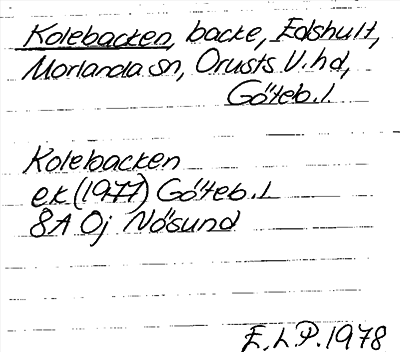 Kolebacken, backe, Edshult,
Morlanda sn, Orusts V. hd,
Göteb. l.
Kolebacken
ek (1977) Göteb. L
8A 0j Nösund
E.L.P. 1978